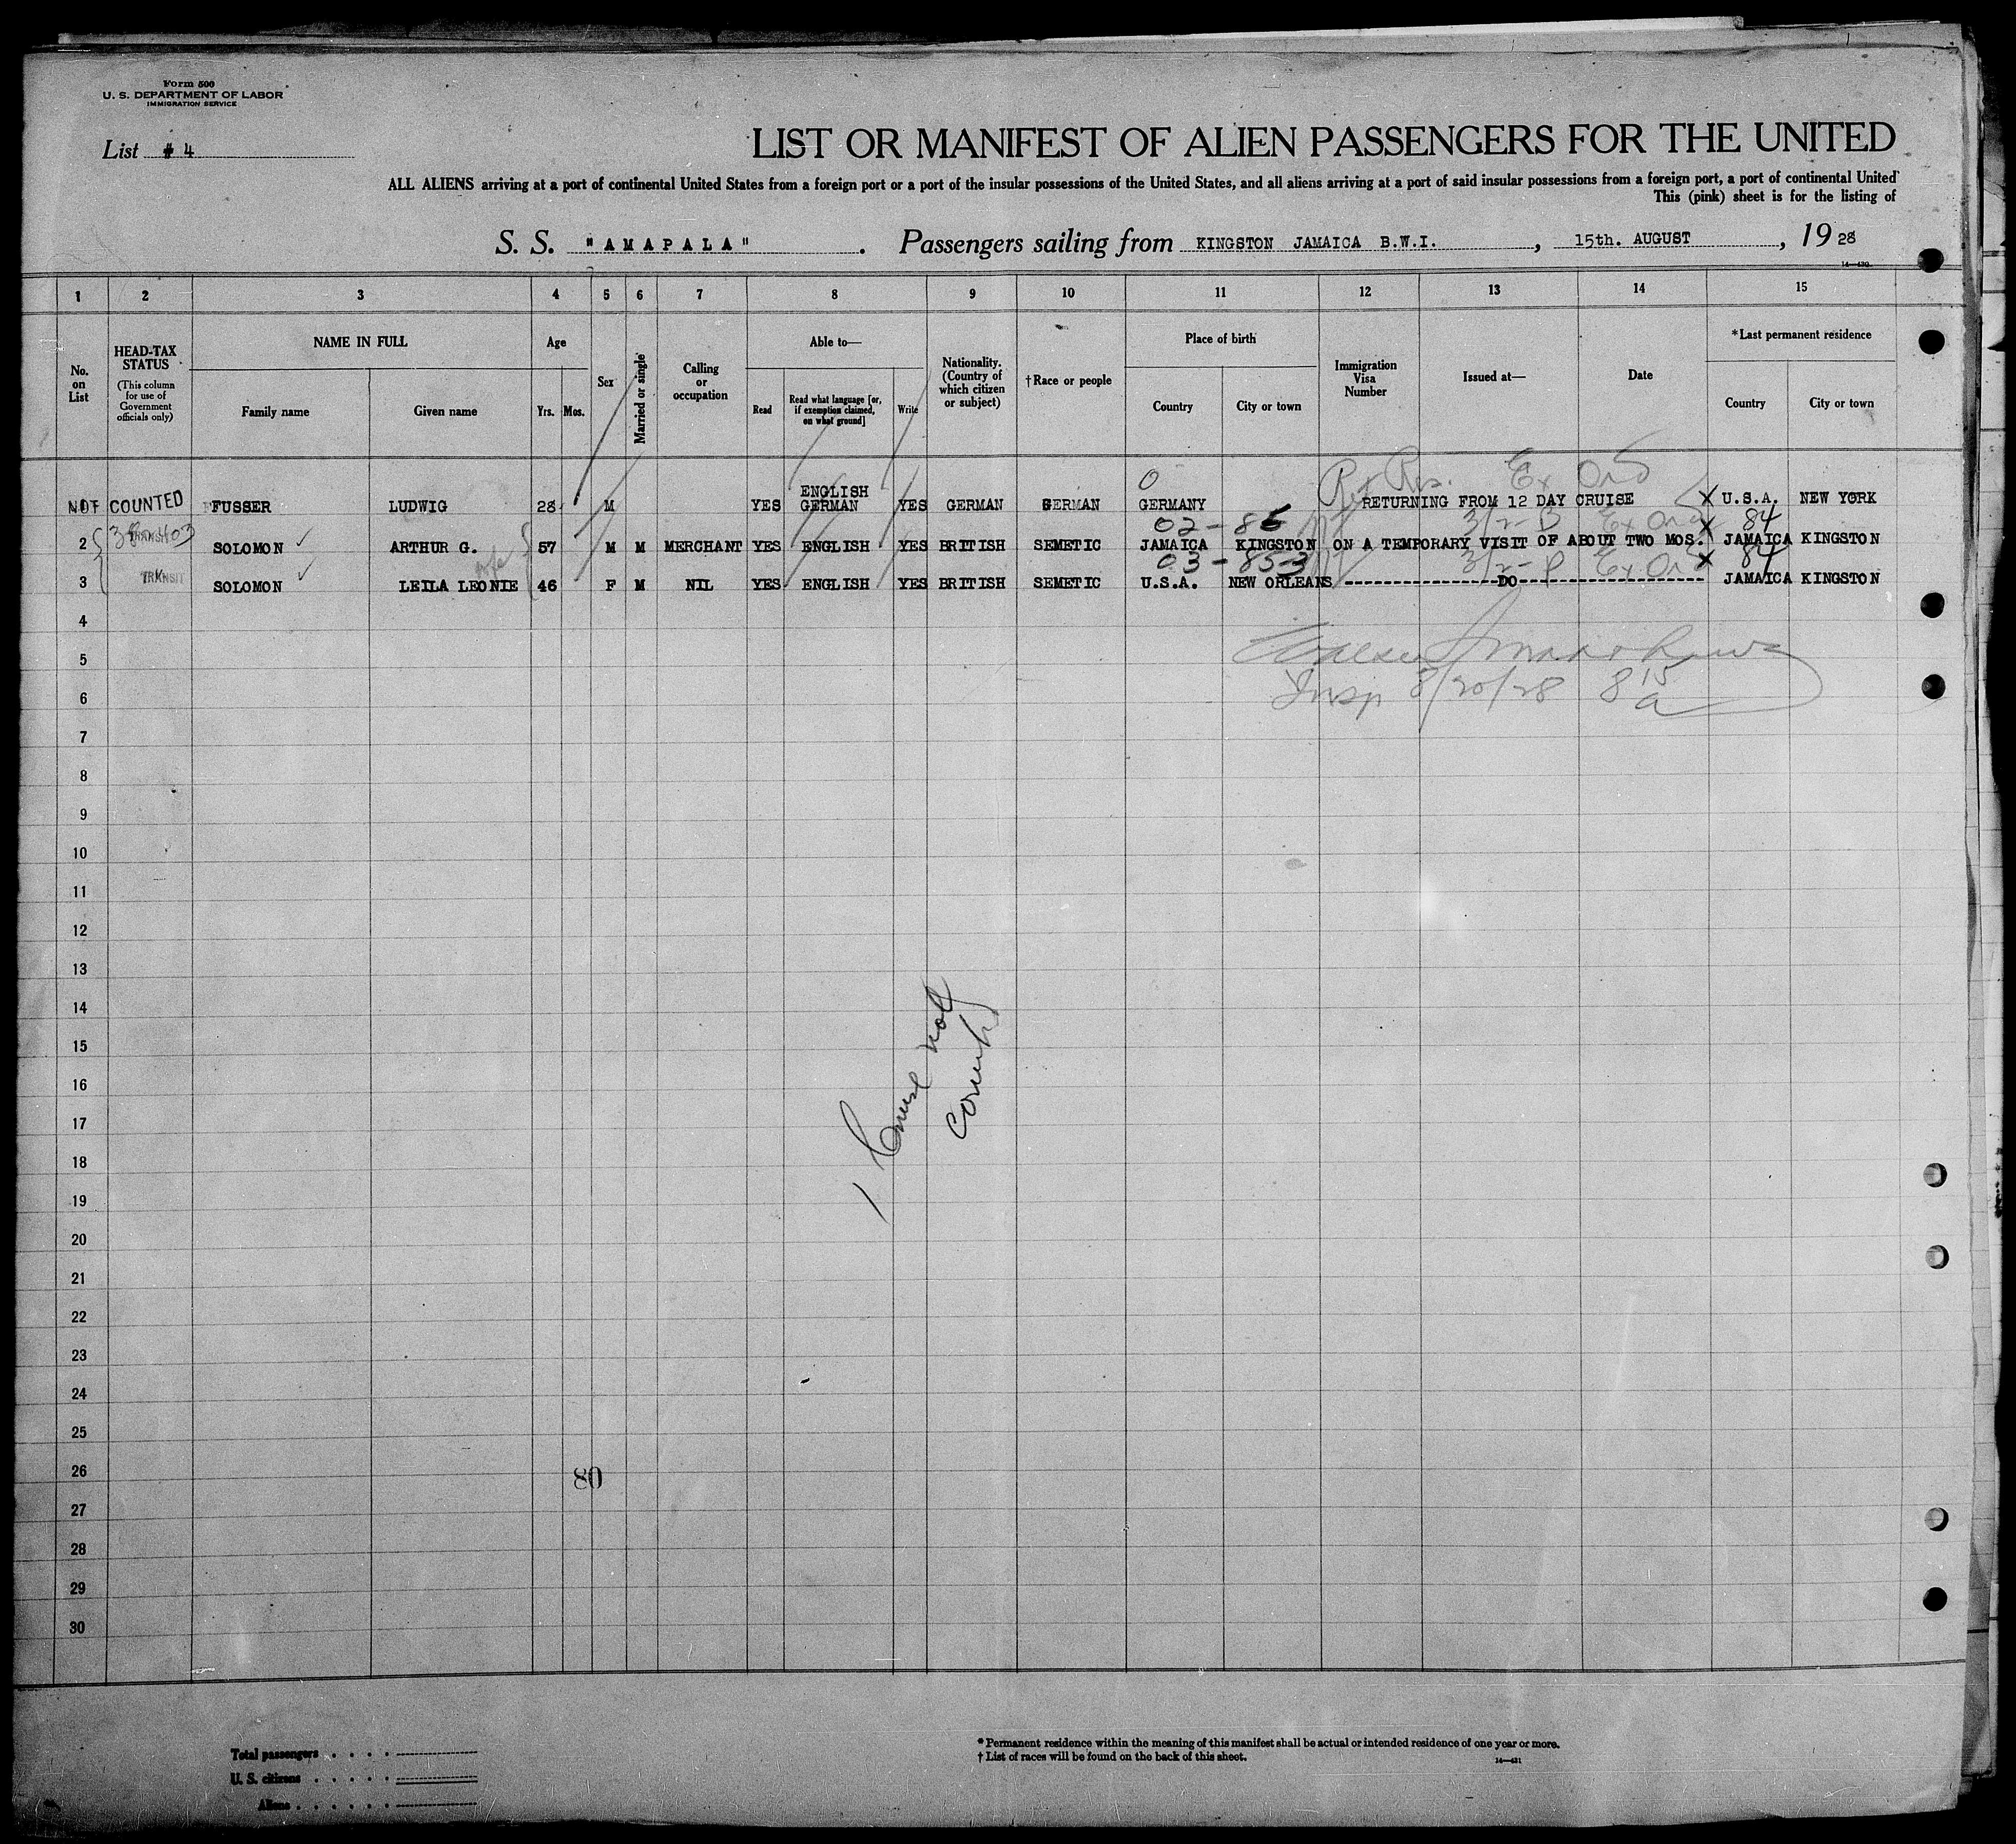 Form 500
U. S. DEPARTMENT OF LABOR
IMMIGRATION SERVICE
List # 4
LIST OR MANIFEST OF ALIEN PASSENGERS FOR THE UNITED
ALL ALIENS arriving at a port of continental United States from a foreign port or a port of the insular possessions of the United States, and all aliens arriving at a port of said insular possessions from a foreign port, a port of continental United
This (pink) sheet is for the listing of
S. S. "AMAPALA". Passengers sailing from KINGSTON JAMAICA B.W.I., 15th. AUGUST, 1928
1 2 3 4 5 6 7 8 9 10 11 12 13 14 15
No. on List
HEAD-TAX STATUS (This column for use of Government officials only)
NAME IN FULL
Family name
Given name
Age
Yrs.
Mos.
Sex
Married or single
Calling or occupation
Able to—
Read
Read what language [or, if exemption claimed, on what ground]
Write
Nationality. (Country of which citizen or subject)
† Race or people
Place of birth
Country
City or town
Immigration Visa Number
Issued at—
Date
*Last permanent residence
Country
City or town
Ex Ord
NOT COUNTED FUSSER LUDWIG 28 M YES ENGLISH GERMAN YES GERMAN GERMAN GERMANY RETURNING FROM 12 DAY CRUISE X U.S.A. NEW YORK
02-85 3/2-B Ex Ord X 84
2 TRANSIT SOLOMON ✓ ARTHUR G. 57 M M MERCHANT YES ENGLISH YES BRITISH SEMETIC JAMAICA KINGSTON ON A TEMPORARY VISIT OF ABOUT TWO MOS. JAMAICA KINGSTON
wife 03-853 3/2-B Ex Ord X 84
3 TRANSIT SOLOMON ✓ LEILA LEONIE 46 F M NIL YES ENGLISH YES BRITISH SEMETIC U.S.A. NEW ORLEANS DO JAMAICA KINGSTON
4
5
Insp 8/20/28 8 15 a
6
7
8
9
10
11
12
13
14
15
16
17
18
19
20
21
22
23
24
25
26
27
28
29
30
1 Cruise not
Count
80
Total passengers
U. S. citizens
Aliens
* Permanent residence within the meaning of this manifest shall be actual or intended residence of one year or more.
† List of races will be found on the back of this sheet.
14—431